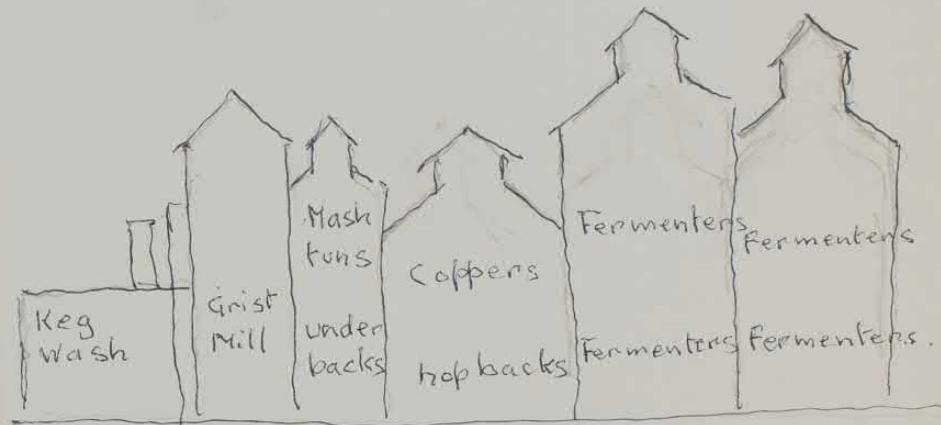 Keg
Wash
Grist
Mill
Mash
tuns
under
backs
Coppers
hop backs
Fermenters
Fermenters
Fermenters
Fermenters.